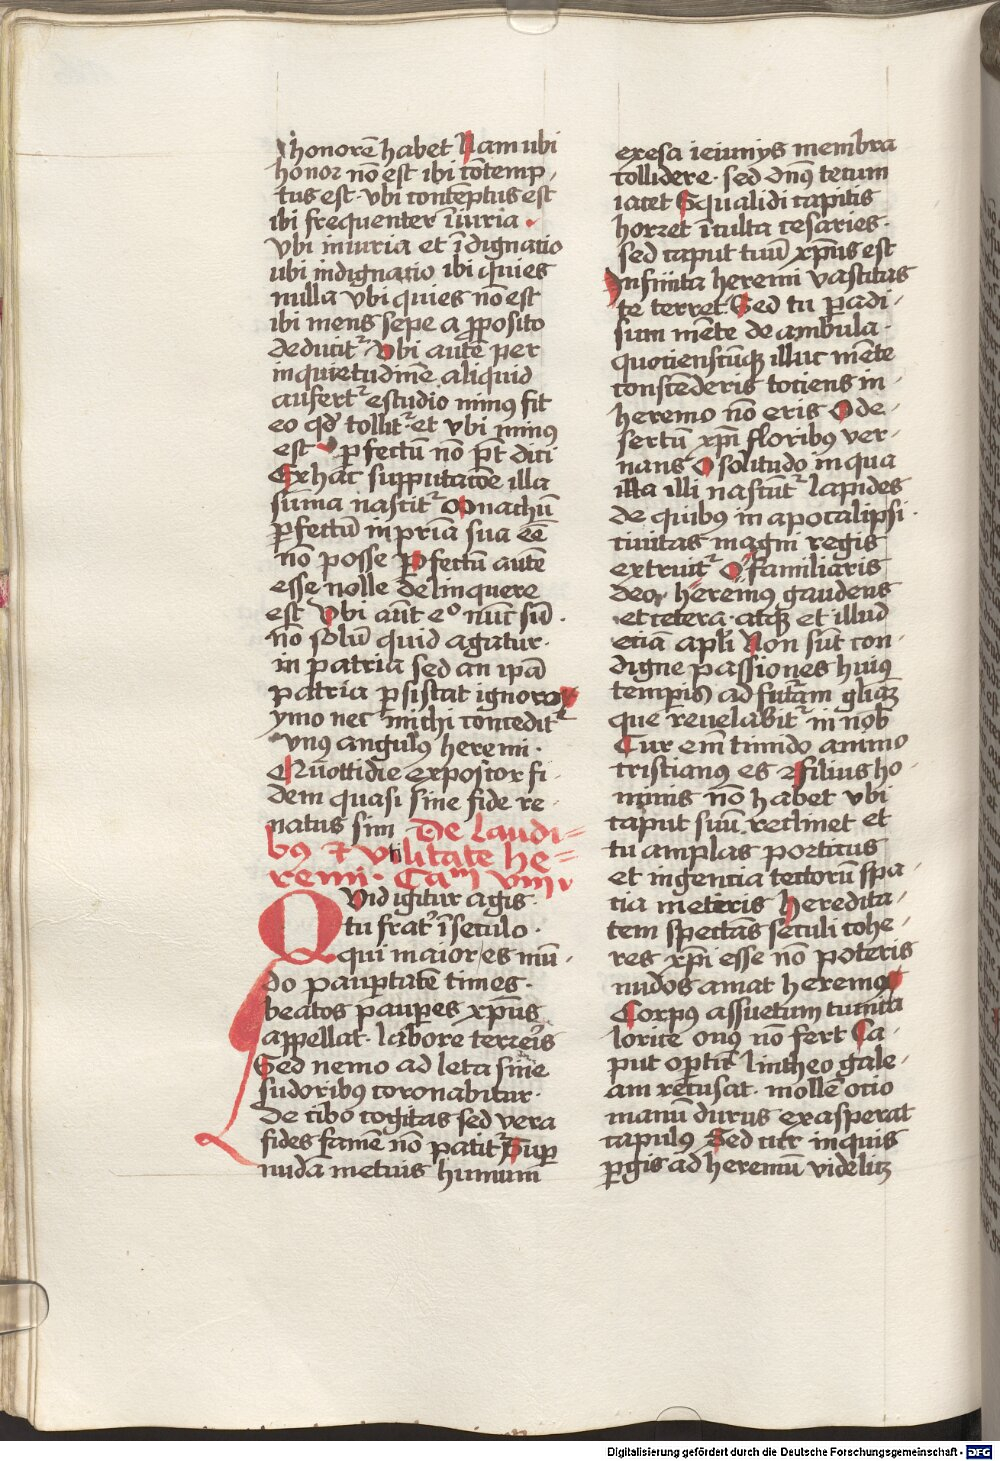 honorē habet Nam ubi
honor nō est ibi cōtemp-
tus est · vbi contēptus est
ibi frequenter īiuria ·
vbi iniuria et īdignatio
ubi indignatio ibi quies
nulla vbi quies nō est
ibi mens sepe a ꝓposito
deducitᷣ Vbi autē per
inquietudinē aliquid
aufertᷣ e studio minꝯ fit
eo qd̛ tollitᷣ et vbi minꝯ
est ꝑfectū nō pt̄ dici
Ex hac supputacōe illa
sūma nascitᷣ Monachū
ꝑfectū in pr̄ia sua eē̄
nō posse ꝑfectū autē
esse nolle delinquere
est Vbi aūt e° nūc sū ·
nō solū quid agatur ·
in patria sed an ip̄ā
patria ꝑsistat ignoro
ymo nec michi conceditᷣ
vnꝯ angulꝯ heremi ·
Nūottidie expostor fi-
dem quasi sine fide re-
natus sim De laudi=
bꝯ et vtilitate he=
remi · Cam viiii
Qvid igitur agis
tu frat̛ ī seculo ·
qui maior es mū-
do pauptatē times ·
beatos pauꝑes xp̄us
appellat · labore terreris
Sed nemo ad leta sine
sudoribꝯ coronabitur ·
de cibo cogitas sed vera
fides famē nō patitᷣ Suꝑ
nuda metuis humum
exesa ieiunijs membra
collidere · sed dn̄us tecum
iacet Squalidi capitis
horret īculta cesaries ·
sed caput tuū xp̄us est
Infinita heremi vastitas
te terret Sed tu padi-
sum mēte de ambula ·
quotienscūqꝫ illuc mēte
conscenderis tociens in
heremo nō eris O de-
sertū xp̄i floribꝯ ver-
nans O solitudo in qua
illa illi nascūtᷣ lapides
de quibꝯ in apocalipsi ·
ciuitas magni regis
extruitᷣ O familiaris
deo heremꝯ gaudens
et cetera · atqꝫ et illud
eciā apl̄i Non sūt con-
digne passiones huiꝯ
tempis ad futam gliāqꝫ
que reuelabitᷣ in nob
Cur em̄ timido animo
cristianꝯ es filius ho-
minis nō habet vbi
caput suū reclinet et
tu amplas porticus
et ingencia tectorū spa-
cia meteris heredita-
tem spectans seculi cohe-
res xp̄i esse nō poteris
nudos amat heremꝯ
Corpꝯ assuetum tunica
lorice onꝯ nō fert Ca-
put optū lintheo gale-
am recusat · mollē ocio
manū durus exasperat
capulꝯ Sed cur inquis
ꝑgis ad heremū videlicꝫ
Digitalisierung gefördert durch die Deutsche Forschungsgemeinschaft - DFG